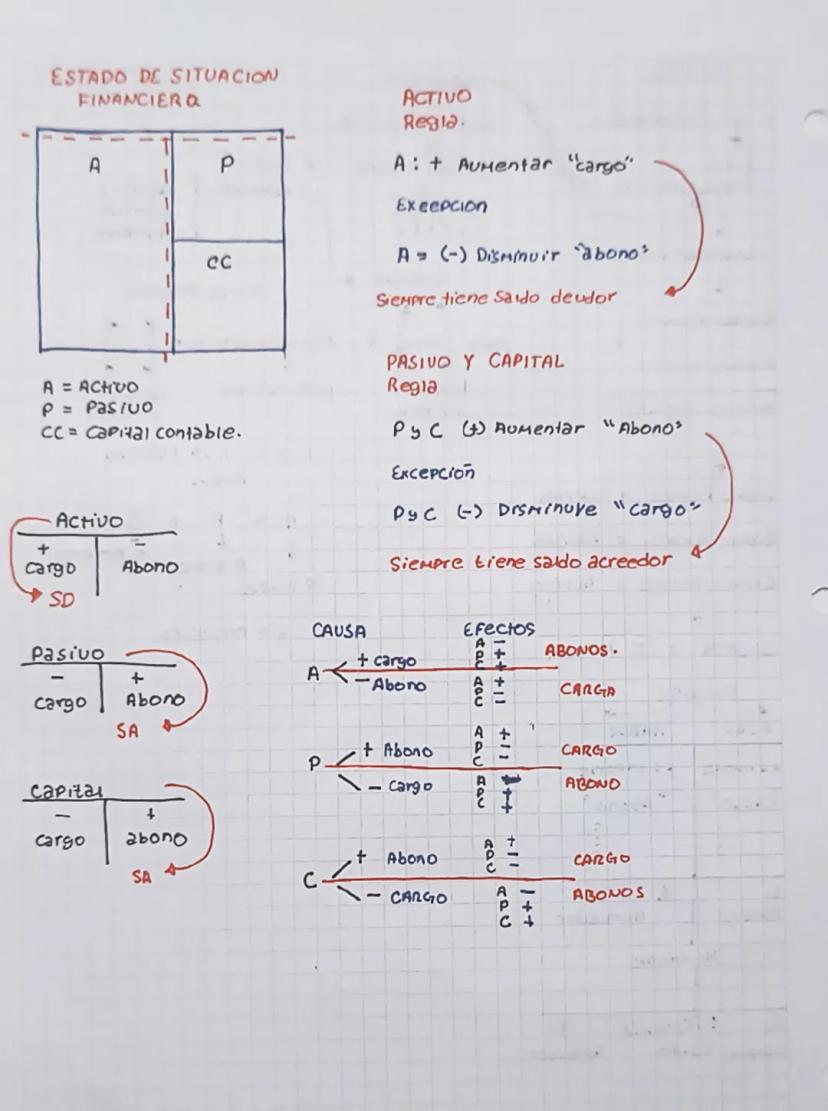 ESTADO DE SITUACION
FINANCIERA
A
P
CC
A = ACTIVO
P = PASIVO
CC = CAPITAL contable.
ACTIVO
Regla.
A : + AUMENTAR "cargo"
EXCEPCION
A = (-) DISMINUIR "abono"
SIEMPRE tiene saldo deudor
PASIVO Y CAPITAL
Regla
P y C (+) AUMENTAR "Abono"
EXCEPCIÓN
P y C (-) DISMINUYE "cargo"
SIEMPRE tiene saldo acreedor
ACTIVO
+ -
cargo Abono
SD
Pasivo
- +
cargo Abono
SA
Capital
- +
cargo abono
SA
CAUSA EFectos
A + cargo A - P + C + ABONOS.
- Abono A + P - C - CARGA
P + Abono A + P - C - CARGO
- cargo A - P + C + ABONO
C + Abono A + P - C - CARGO
- CARGO A - P + C + ABONOS